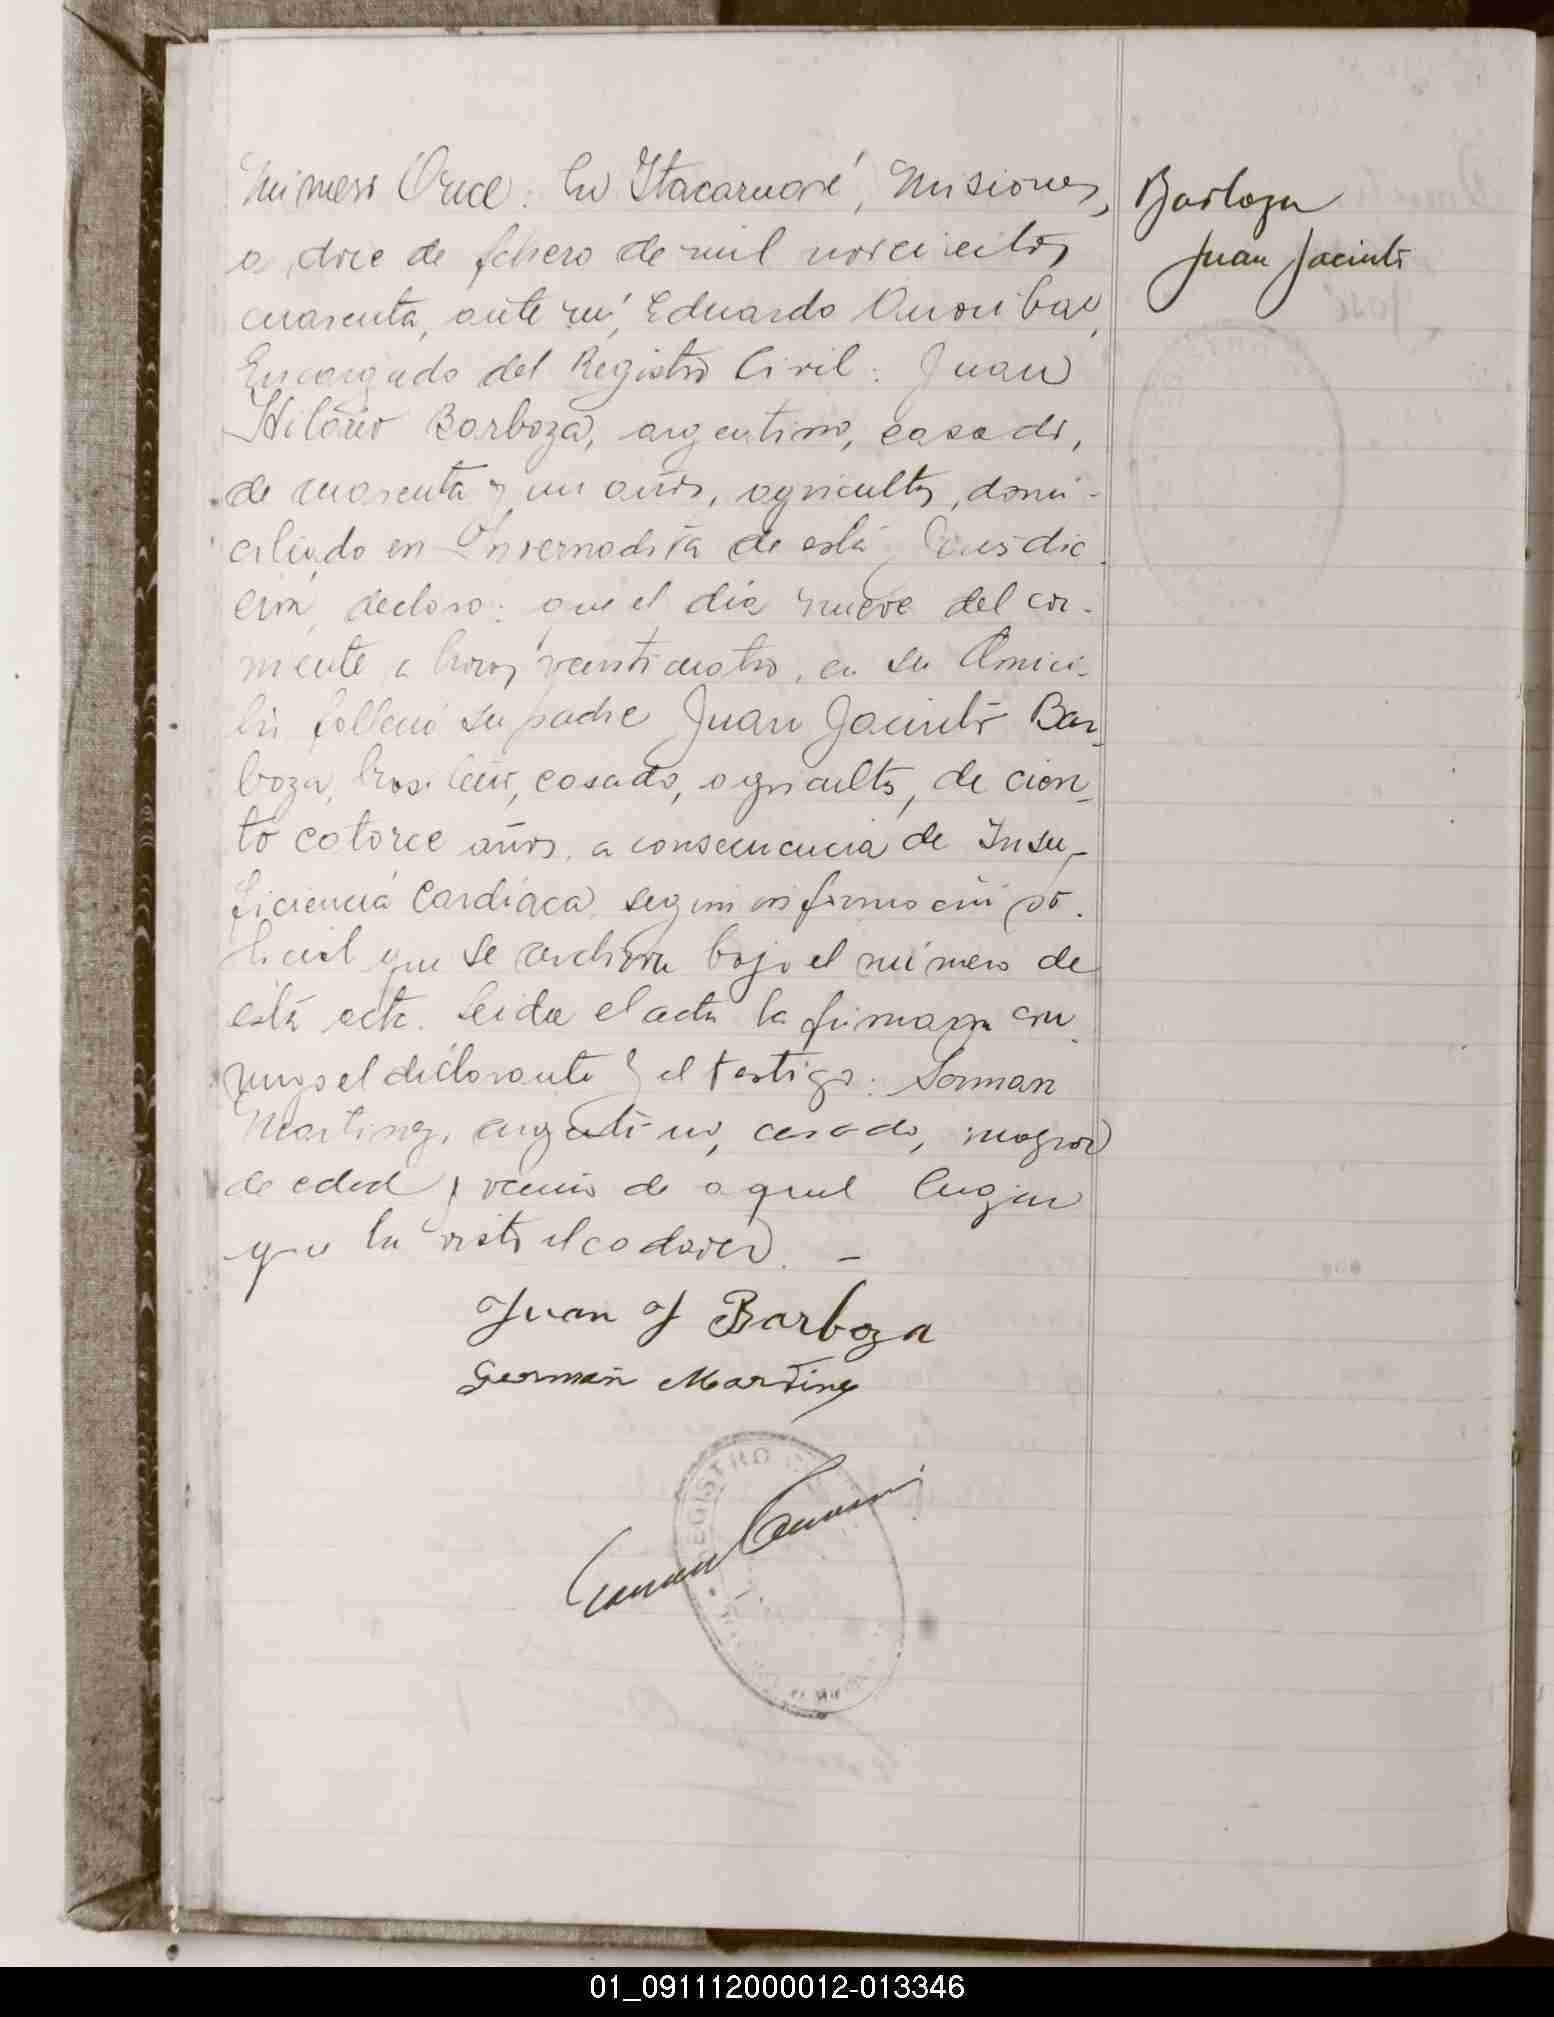 Número Once. En Itacaruaré, Misiones,
a doce de febrero de mil novecientos
cuarenta, ante mí, Eduardo
Encargado del Registro Civil: Juan
Hilario Barboza, argentino, casado,
de cuarenta y un años, agricultor, domi-
ciliado en Invernadita de esta Jurisdic
ción, declaró: que el día nueve del co-
rriente a horas veinticuatro, en su domici-
lio falleció su padre Juan Jacinto Bar-
boza, brasileño, casado, agricultor, de cien-
to catorce años, a consecuencia de Insu-
ficiencia Cardíaca según información po-
licial que se archiva bajo el número de
esta acta. Leida el acta la firmaron con
migo el declarante y el testigo: German
Martinez, argentino, casado, mayor
de edad y vecino de aquel lugar
que ha visto el cadaver. -
Juan J Barboza
German Martinez
REGISTRO
Barboza
Juan Jacinto
01_091112000012-013346